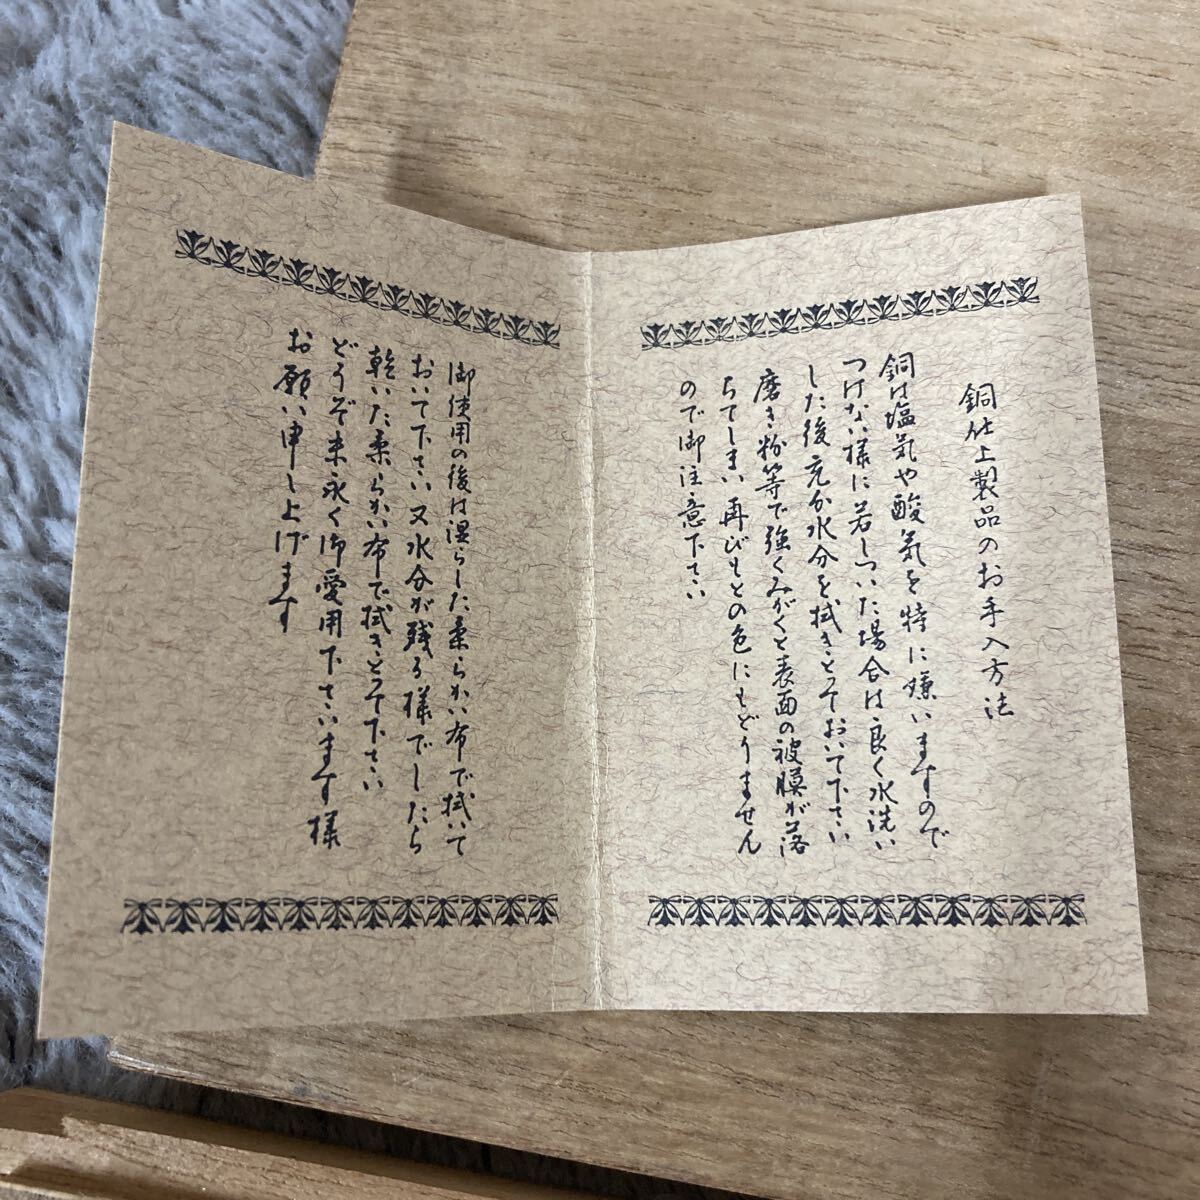 銅仕上製品のお手入方法
銅は塩気や酸気を特に嫌いますので
つけない様に若しついた場合は良く水洗い
した後充分水分を拭きとっておいて下さい
磨き粉等で強くみがくと表面の被膜が落
ちてしまい再びもとの色にもどりません
ので御注意下さい
御使用の後は湿らした柔らかい布で拭いて
おいて下さい又水分が残る様でしたら
乾いた柔らかい布で拭きとって下さい
どうぞ末永く御愛用下さいます様
お願い申し上げます